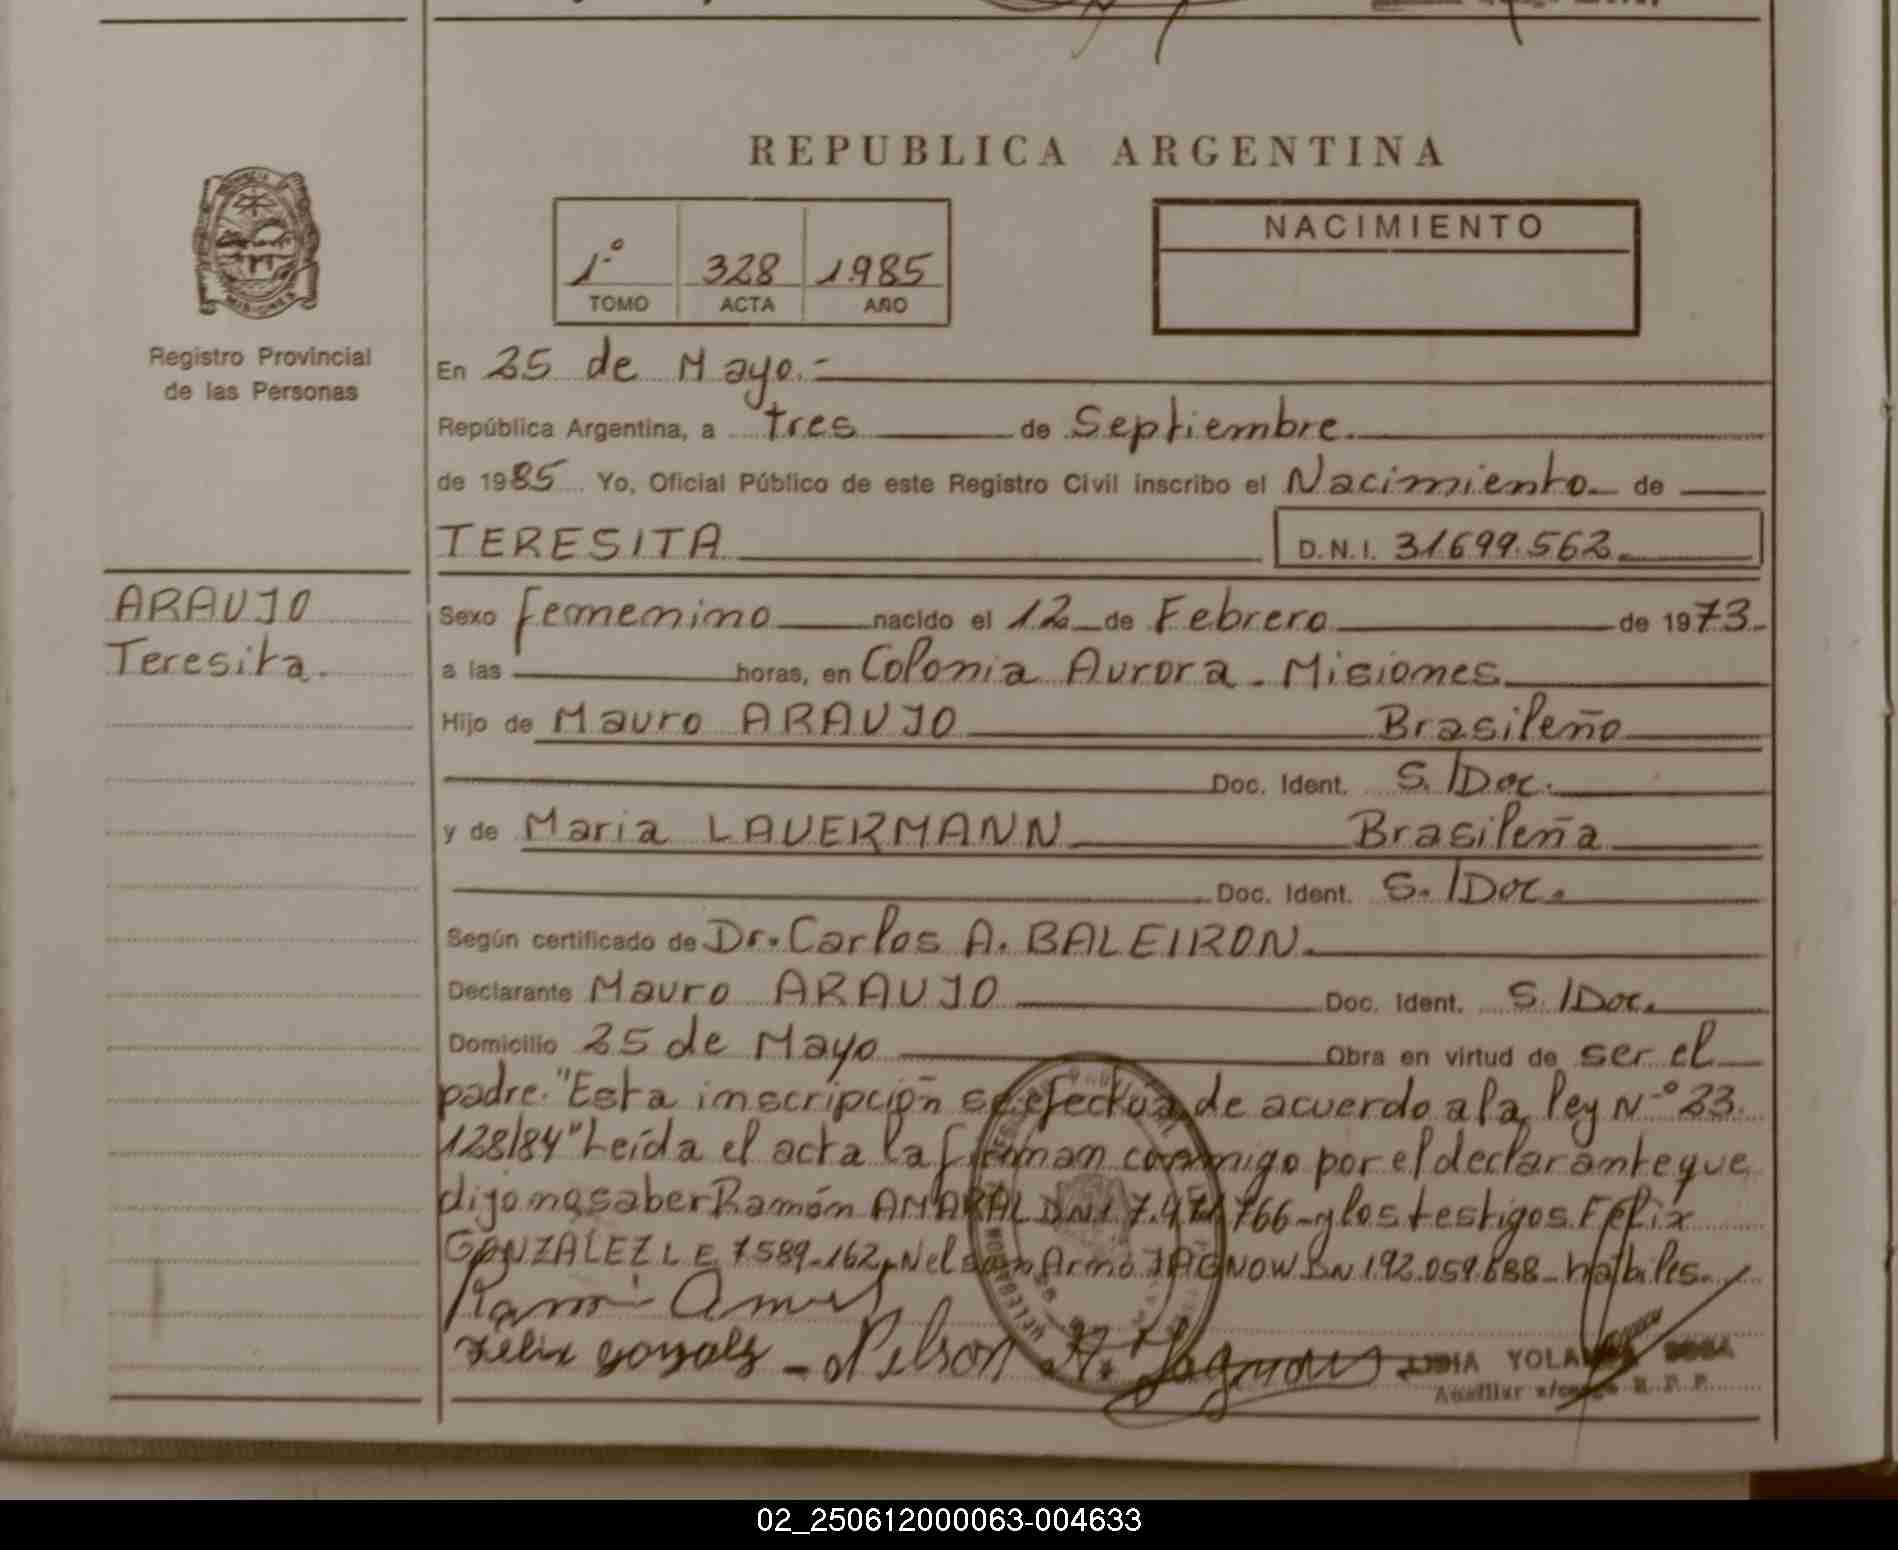 REPUBLICA ARGENTINA
1º 328 1.985
TOMO ACTA AÑO
NACIMIENTO
Registro Provincial
de las Personas
En 25 de Mayo.-
República Argentina, a tres de Septiembre.
de 1985 Yo, Oficial Público de este Registro Civil inscribo el Nacimiento de
TERESITA D.N.I. 31.699.562
ARAUJO
Teresita.
Sexo femenino nacido el 12 de Febrero de 1973
a las horas, en Colonia Aurora - Misiones
Hijo de Mauro ARAUJO Brasileño
Doc. Ident. S./Doc.
y de Maria LAUERMANN Brasileña
Doc. Ident. S./Doc.
Según certificado de Dr. Carlos A. BALEIRON.
Declarante Mauro ARAUJO Doc. Ident. S./Doc.
Domicilio 25 de Mayo Obra en virtud de ser el
padre. "Esta inscripción se efectua de acuerdo a la ley Nº 23.
128/84" Leída el acta la firman conmigo por el declarante que
dijo no saber Ramón AMARAL DNI 7.471.766 - y los testigos Felix
GONZALEZ L E 7.589.162 Nelson Armo JAGNOW 92.059.688 - habiles.
Ramón
Felix Gonzalez - Nelson A. Jagnow
LIDIA
Auxiliar a/cargo R. P. P.
02_250612000063-004633